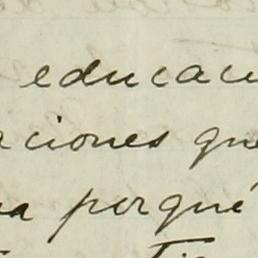 educaci
aciones que
a porqué